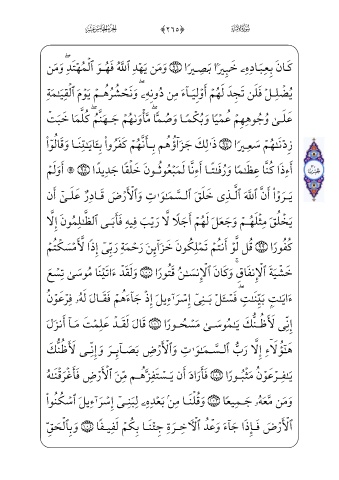 كَانَ بِعِبَادِهِۦ خَبِيرَۢا بَصِيرٗا ۞ وَمَن يَهۡدِ ٱللَّهُ فَهُوَ ٱلۡمُهۡتَدِۖ وَمَن
يُضۡلِلۡ فَلَن تَجِدَ لَهُمۡ أَوۡلِيَآءَ مِن دُونِهِۦۖ وَنَحۡشُرُهُمۡ يَوۡمَ ٱلۡقِيَٰمَةِ
عَلَىٰ وُجُوهِهِمۡ عُمۡيٗا وَبُكۡمٗا وَصُمّٗاۖ مَّأۡوَىٰهُمۡ جَهَنَّمُۖ كُلَّمَا خَبَتۡ
زِدۡنَٰهُمۡ سَعِيرٗا ۞ ذَٰلِكَ جَزَآؤُهُم بِأَنَّهُمۡ كَفَرُواْ بِـَٔايَٰتِنَا وَقَالُوٓاْ
أَءِذَا كُنَّا عِظَٰمٗا وَرُفَٰتًا أَءِنَّا لَمَبۡعُوثُونَ خَلۡقٗا جَدِيدًا ۞ أَوَلَمۡ
يَرَوۡاْ أَنَّ ٱللَّهَ ٱلَّذِي خَلَقَ ٱلسَّمَٰوَٰتِ وَٱلۡأَرۡضَ قَادِرٌ عَلَىٰٓ أَن
يَخۡلُقَ مِثۡلَهُمۡ وَجَعَلَ لَهُمۡ أَجَلٗا لَّا رَيۡبَ فِيهِ فَأَبَى ٱلظَّٰلِمُونَ إِلَّا
كُفُورٗا ۞ قُل لَّوۡ أَنتُمۡ تَمۡلِكُونَ خَزَآئِنَ رَحۡمَةِ رَبِّيٓ إِذٗا لَّأَمۡسَكۡتُمۡ
خَشۡيَةَ ٱلۡإِنفَاقِۚ وَكَانَ ٱلۡإِنسَٰنُ قَتُورٗا ۞ وَلَقَدۡ ءَاتَيۡنَا مُوسَىٰ تِسۡعَ
ءَايَٰتِۭ بَيِّنَٰتٖۖ فَسۡـَٔلۡ بَنِيٓ إِسۡرَٰٓءِيلَ إِذۡ جَآءَهُمۡ فَقَالَ لَهُۥ فِرۡعَوۡنُ
إِنِّي لَأَظُنُّكَ يَٰمُوسَىٰ مَسۡحُورٗا ۞ قَالَ لَقَدۡ عَلِمۡتَ مَآ أَنزَلَ
هَٰٓؤُلَآءِ إِلَّا رَبُّ ٱلسَّمَٰوَٰتِ وَٱلۡأَرۡضِ بَصَآئِرَ وَإِنِّي لَأَظُنُّكَ
يَٰفِرۡعَوۡنُ مَثۡبُورٗا ۞ فَأَرَادَ أَن يَسۡتَفِزَّهُم مِّنَ ٱلۡأَرۡضِ فَأَغۡرَقۡنَٰهُ
وَمَن مَّعَهُۥ جَمِيعٗا ۞ وَقُلۡنَا مِنۢ بَعۡدِهِۦ لِبَنِيٓ إِسۡرَٰٓءِيلَ ٱسۡكُنُواْ
ٱلۡأَرۡضَ فَإِذَا جَآءَ وَعۡدُ ٱلۡأٓخِرَةِ جِئۡنَا بِكُمۡ لَفِيفٗا ۞ وَبِٱلۡحَقِّ